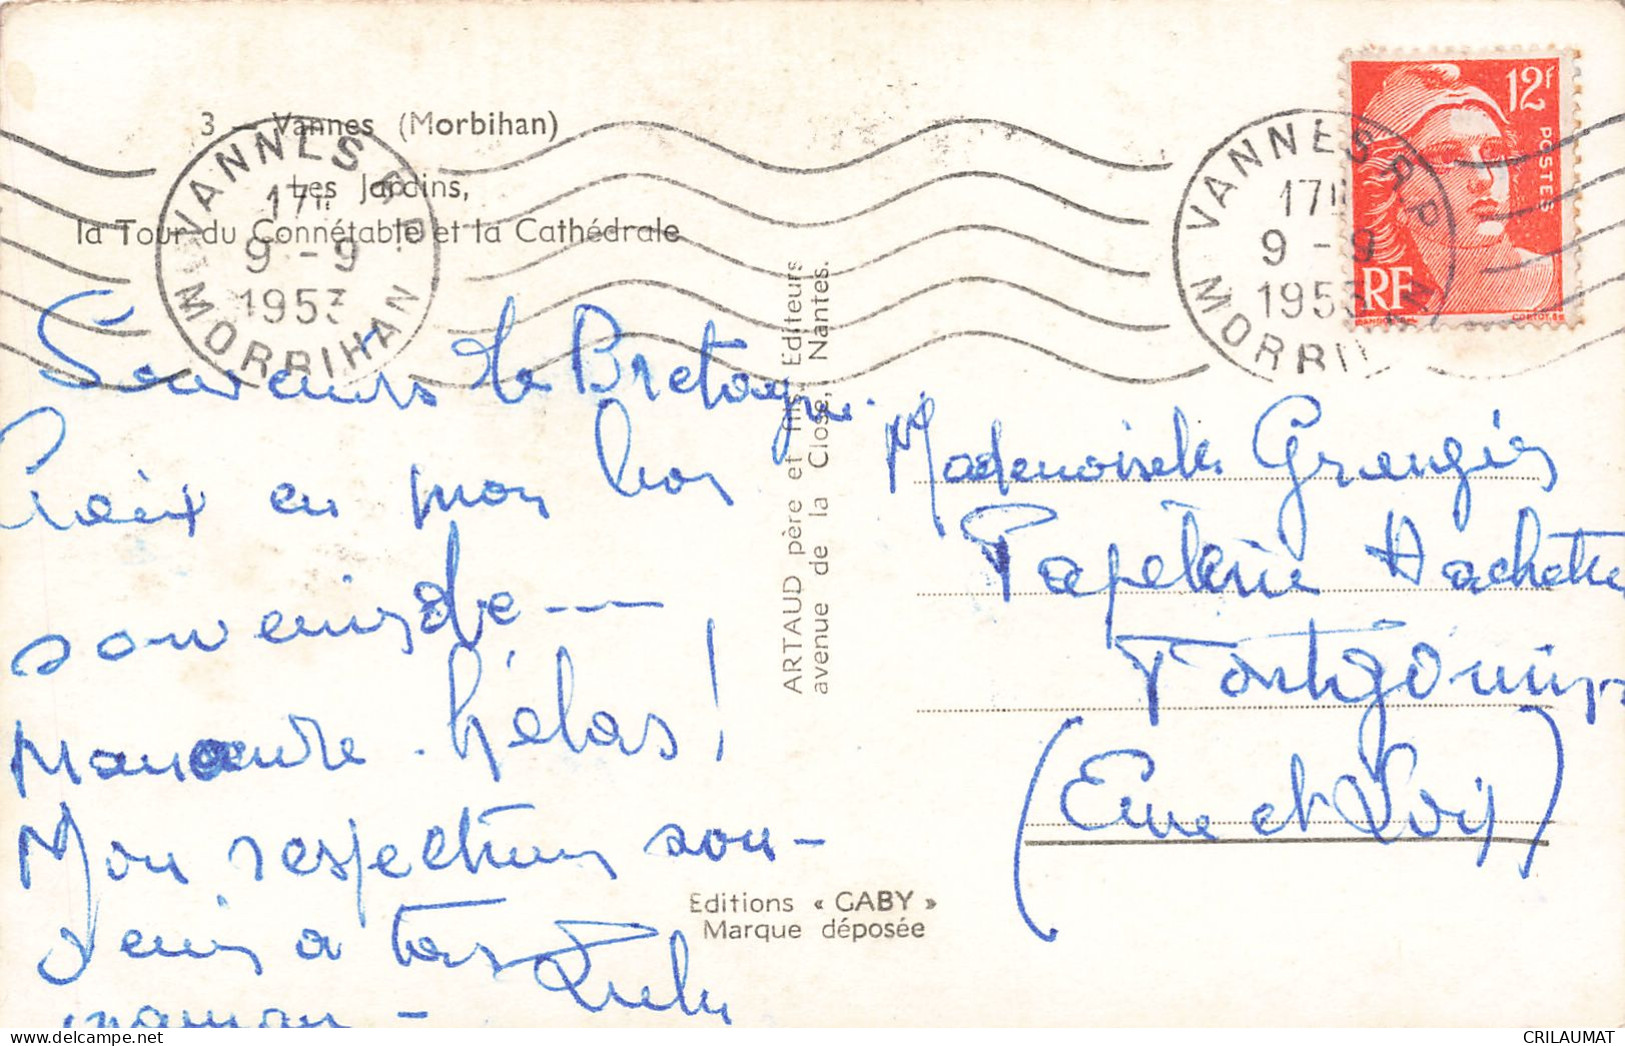 3 - Vannes (Morbihan)
Les Jardins,
la Tour du Connétable et la Cathédrale
VANNES R.P.
17H
9 - 9
1953
MORBIHAN
VANNES R.P.
17H
9 - 9
1953
MORBIHAN
12F
POSTES
RF
Souvenirs de Bretagne.
Croix en mon bon
souvenir de ---
hélas !
Mon respectueux sou-
venir a ta
maman -
ARTAUD père et fils, Editeurs
avenue de la Close, Nantes.
Editions « GABY »
Marque déposée
Mademoiselle
Papeterie Hachette
(Eure et Loir)
CRILAUMAT